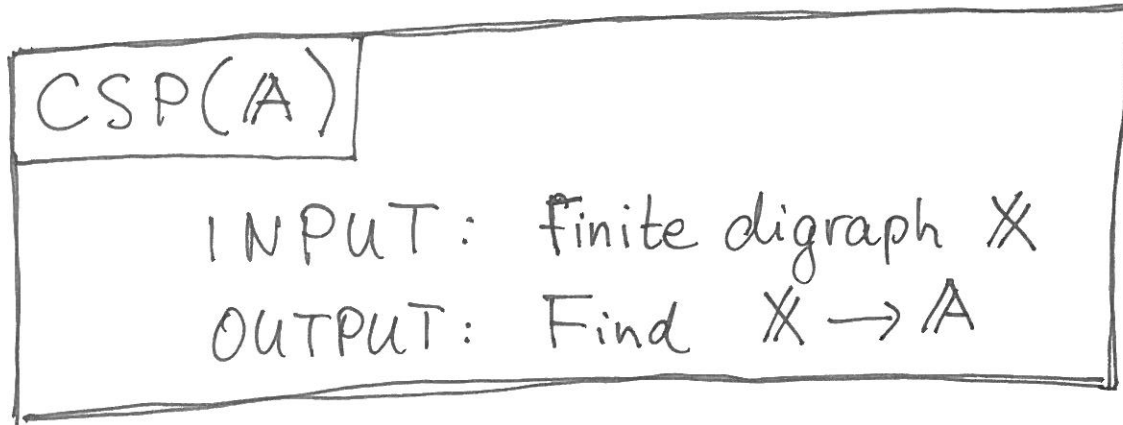 CSP(𝔸)
INPUT: finite digraph 𝕏
OUTPUT: Find 𝕏 → 𝔸